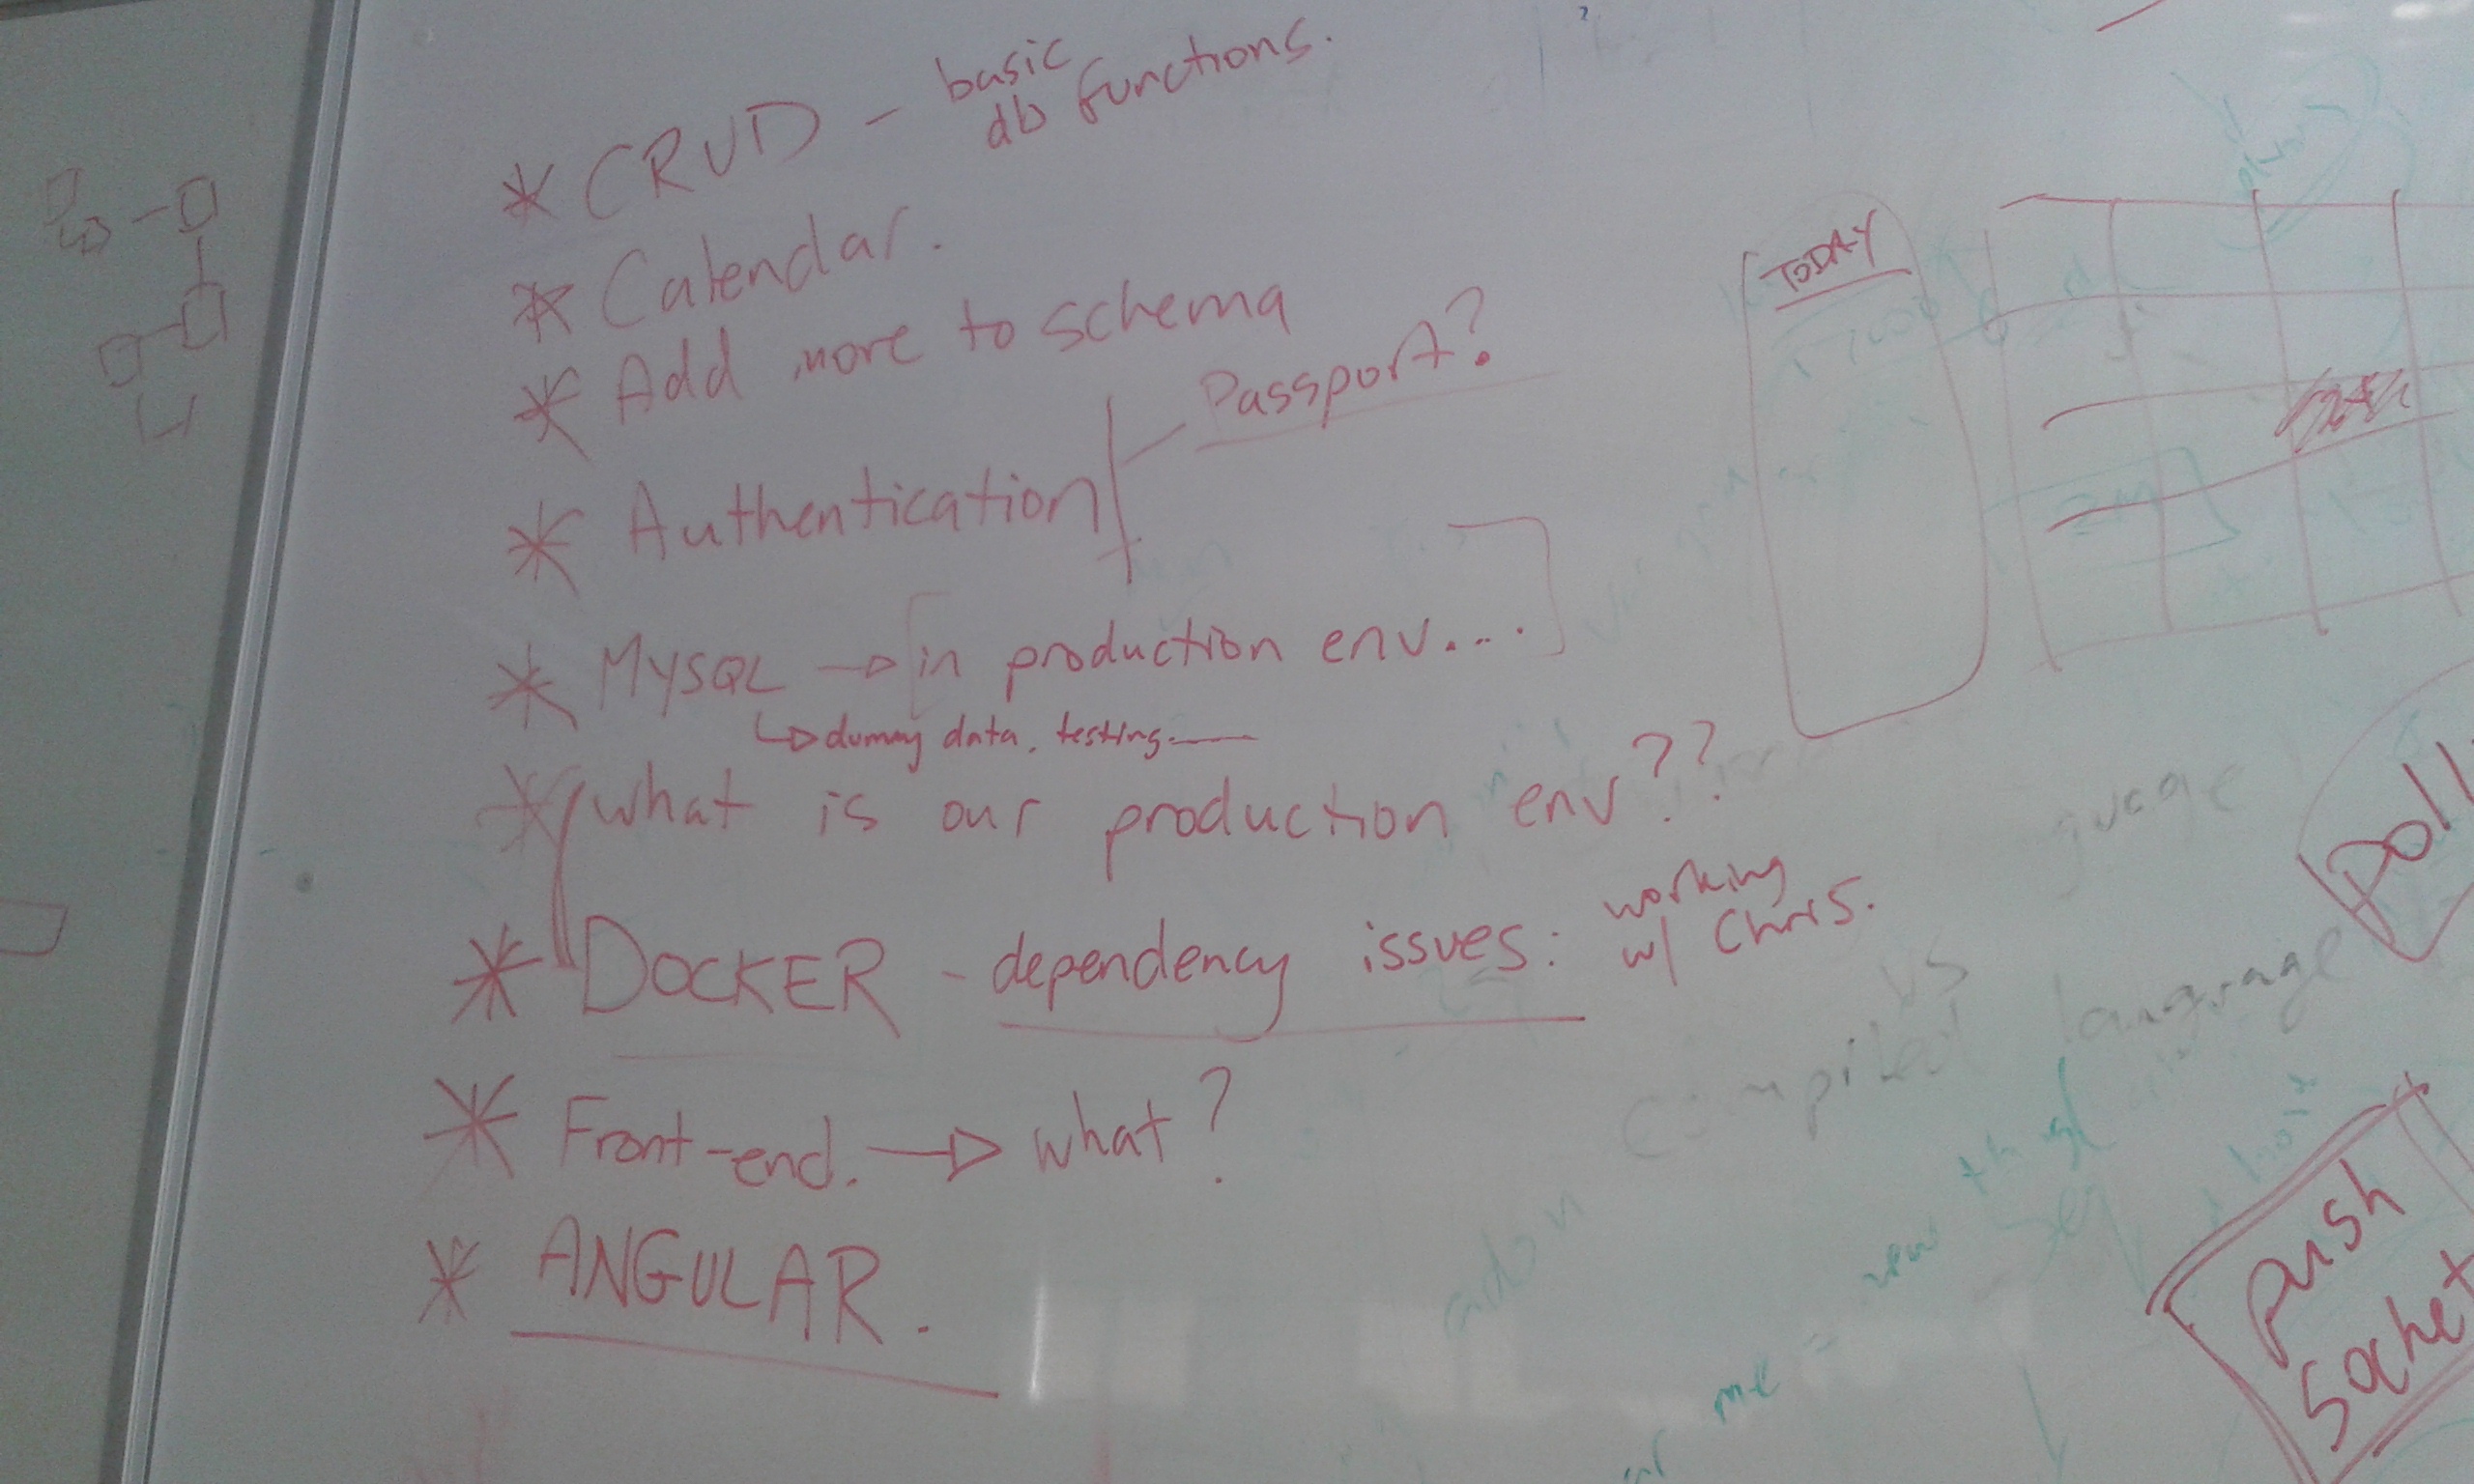 * CRUD - basic
db functions.
* Calendar.
* Add more to schema
* Authentication - Passport?
* MYSQL → in production env...
↳ dummy data, testing —
* what is our production env??
* DOCKER - dependency issues: working
w/ Chris.
* Front-end. → what?
* ANGULAR.
TODAY
guage
vs
compiled language
poll
push
socket
new
me